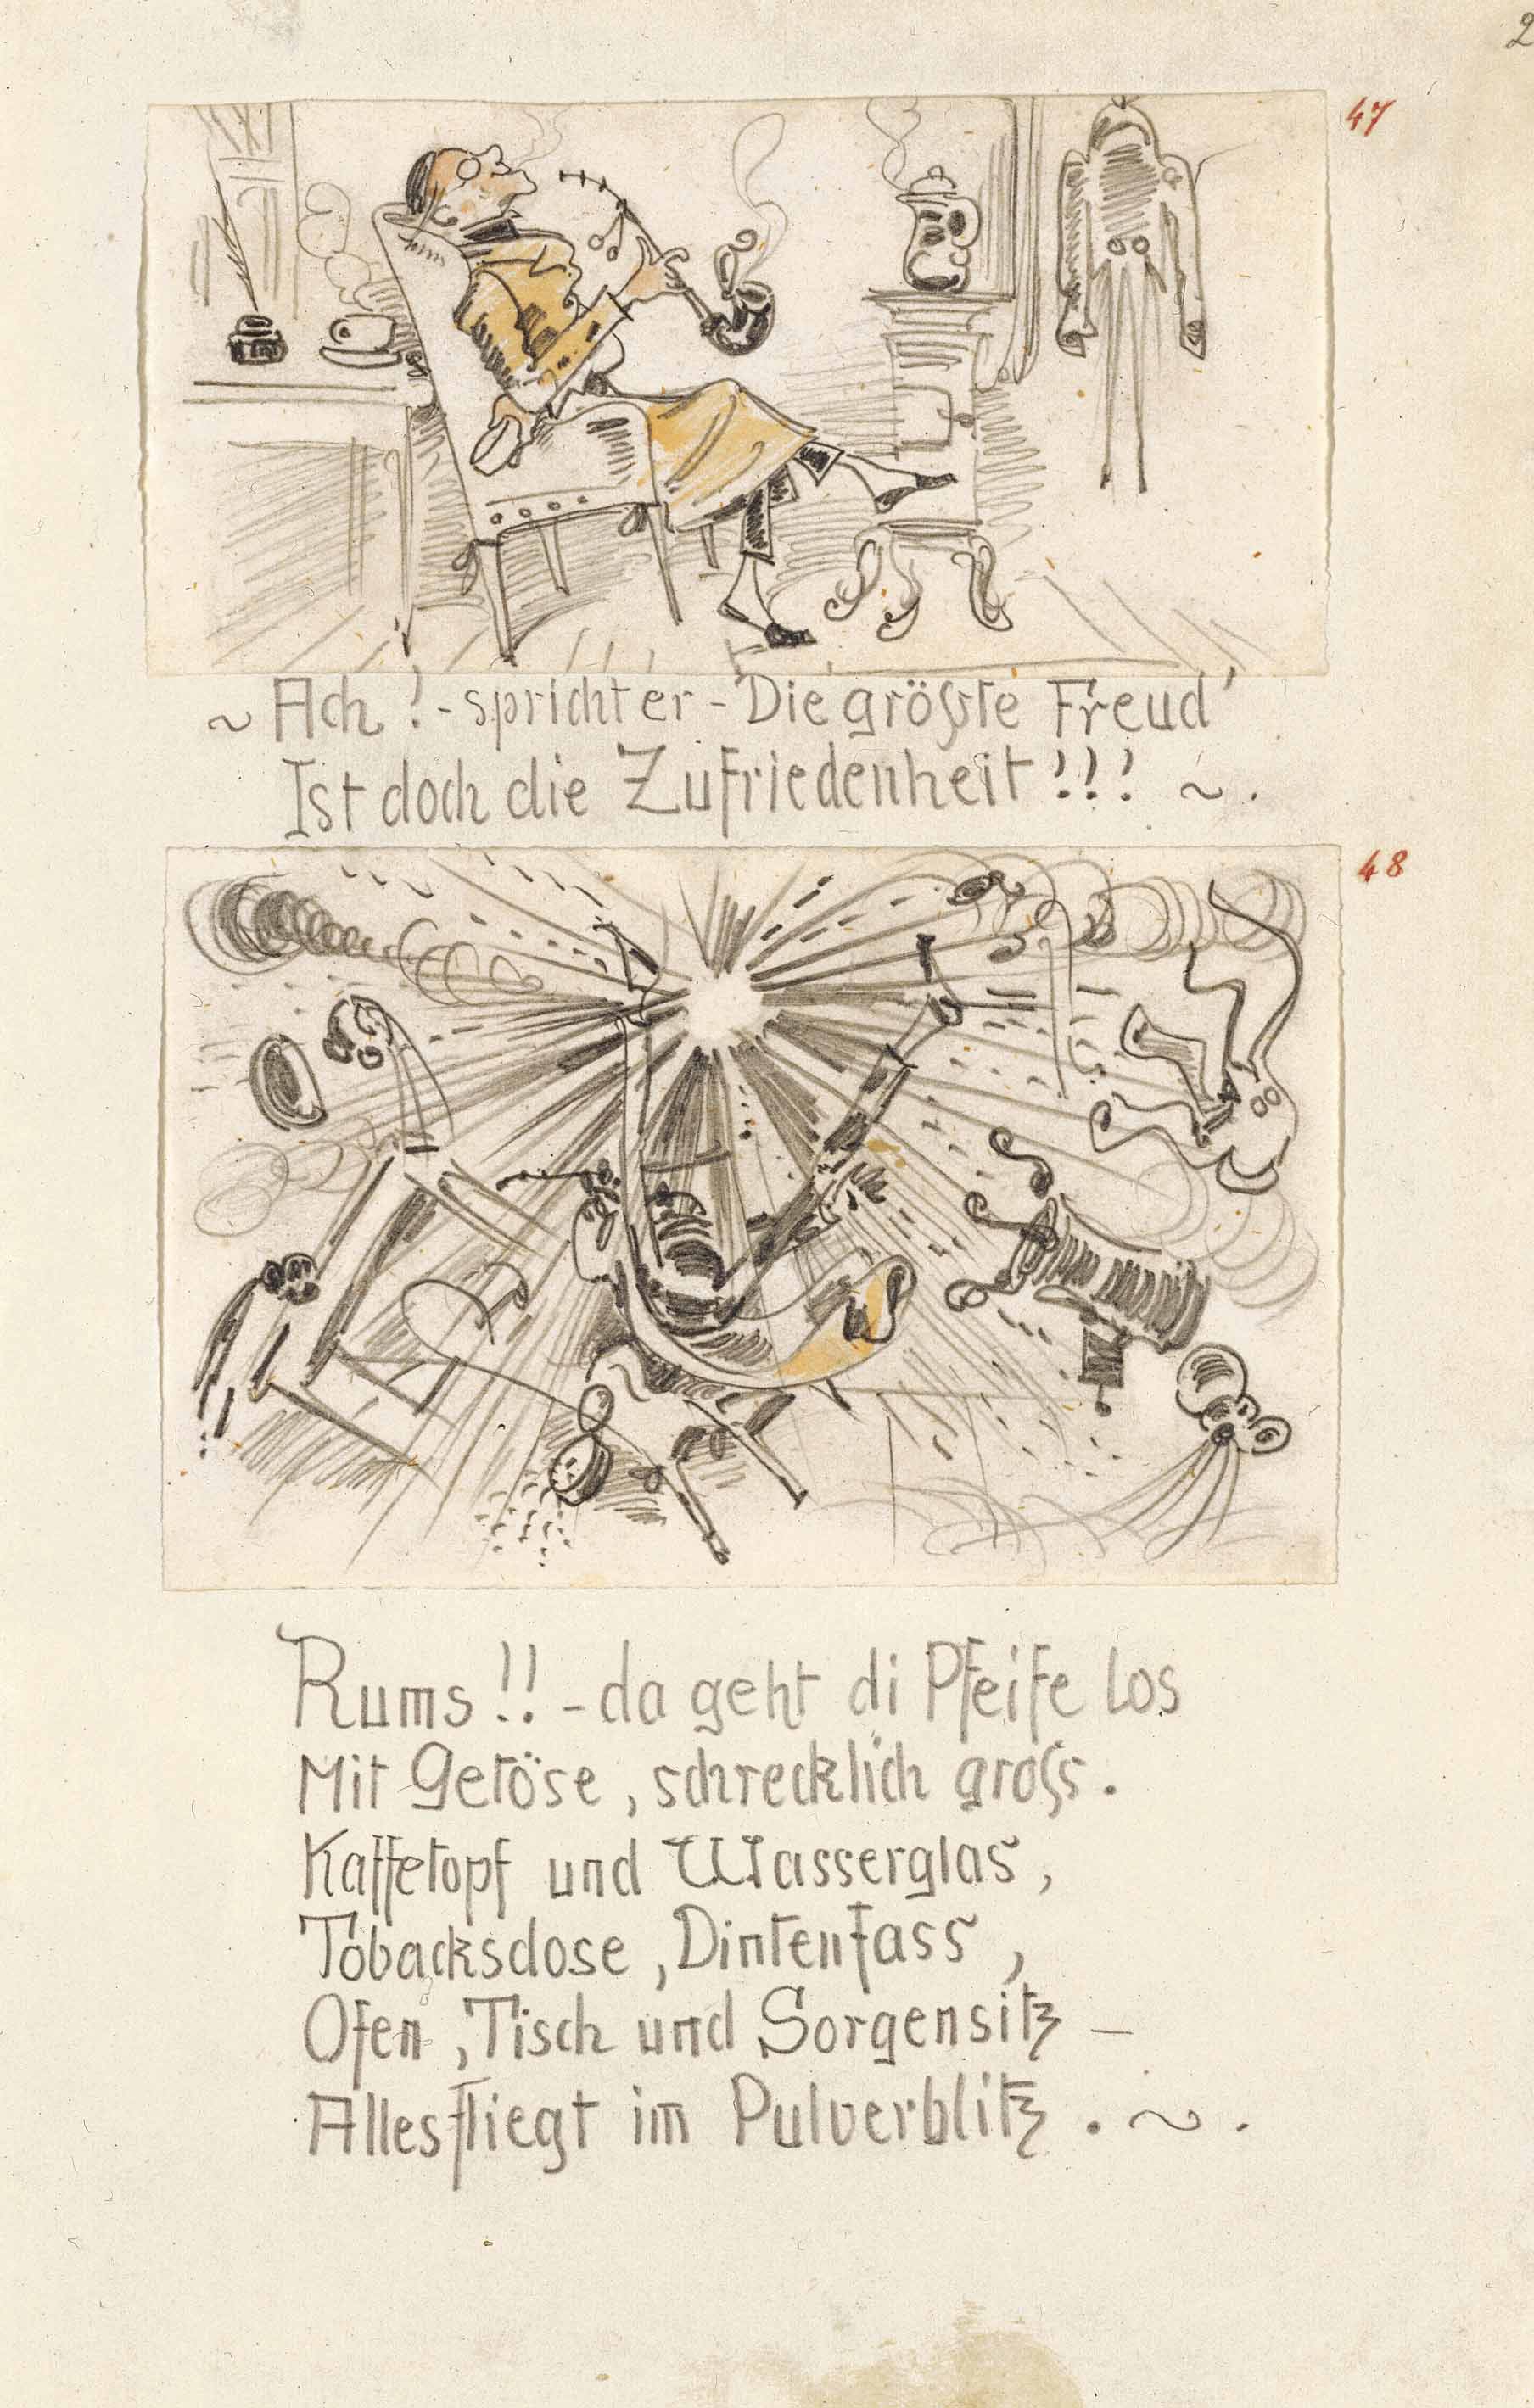 2
47
~ Ach! - spricht er - Die größte Freud'
Ist doch die Zufriedenheit!!! ~.
48
Rums!! - da geht di Pfeife los
Mit Getöse, schrecklich groß.
Kaffetopf und Wasserglas,
Tobacksdose, Dintenfass,
Ofen, Tisch und Sorgensitz -
Alles fliegt im Pulverblitz. ~.